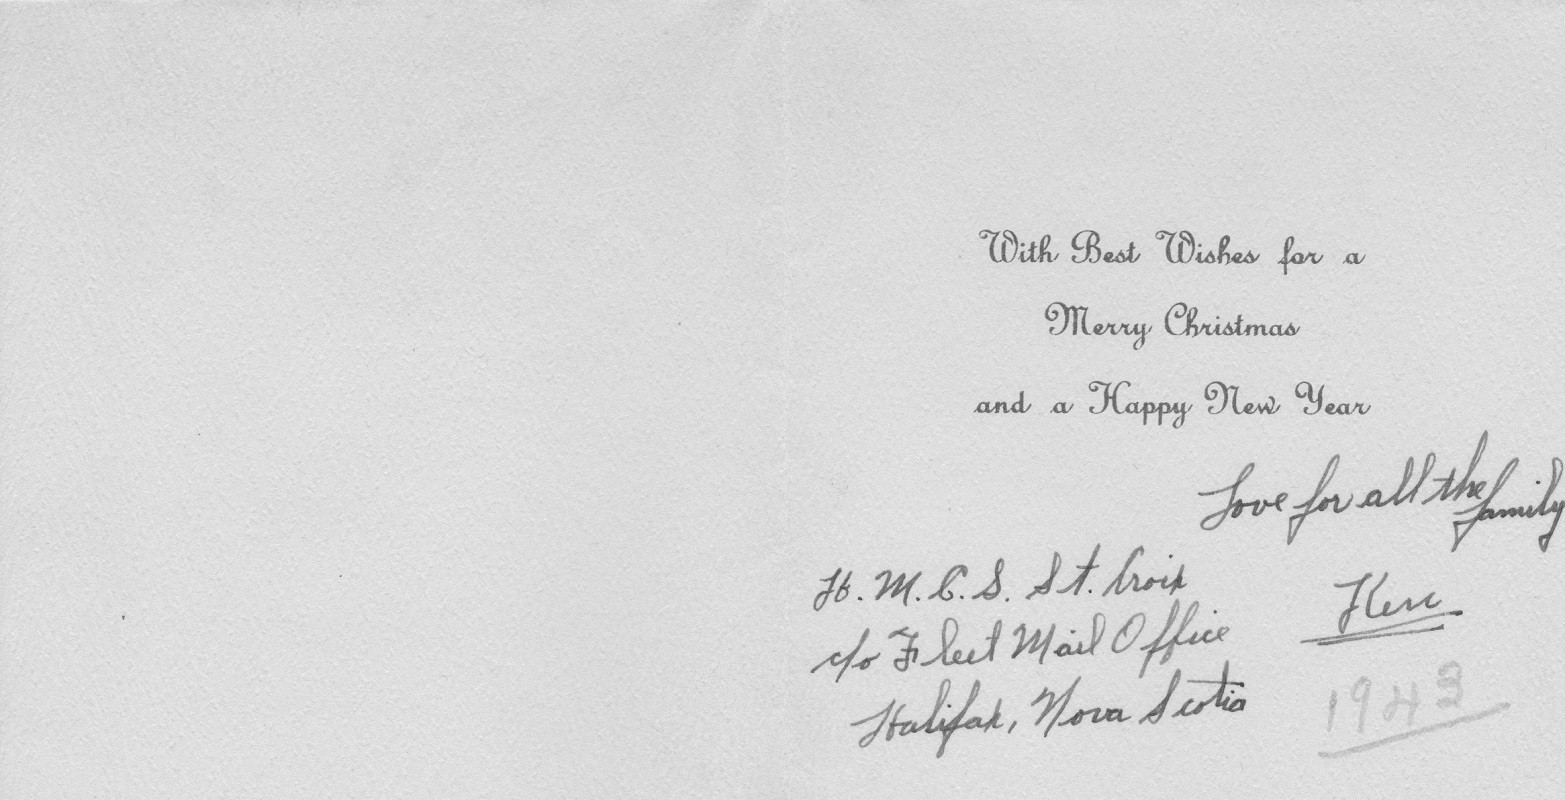 With Best Wishes for a
Merry Christmas
and a Happy New Year
Love for all the family
H.M.C.S. St. Croix
c/o Fleet Mail Office
Halifax, Nova Scotia
Ken
1943